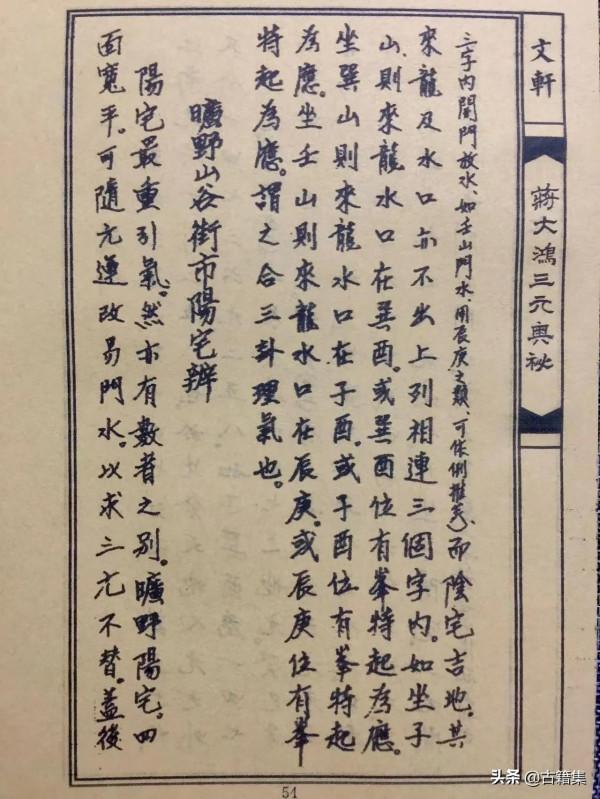 文軒
蔣大鴻三元奧祕
三字内開門放水、如壬山門水、用辰庚之類、可依例推之、而陰宅吉地。其
來龍及水口亦不出上列相連三個字内。如坐子
山、則來龍水口在巽酉。或巽酉位有峯特起為應。
坐巽山則來龍水口在子酉。或子酉位有峯特起
為應。坐壬山則來龍水口在辰庚。或辰庚位有峯
特起為應。謂之合三卦理氣也。
曠野山谷街市陽宅辨
陽宅最重引氣。然亦有數者之别。曠野陽宅。四
面寬平。可隨元運改易門水。以求三元不替。蓋後
54
头条 @古籍集